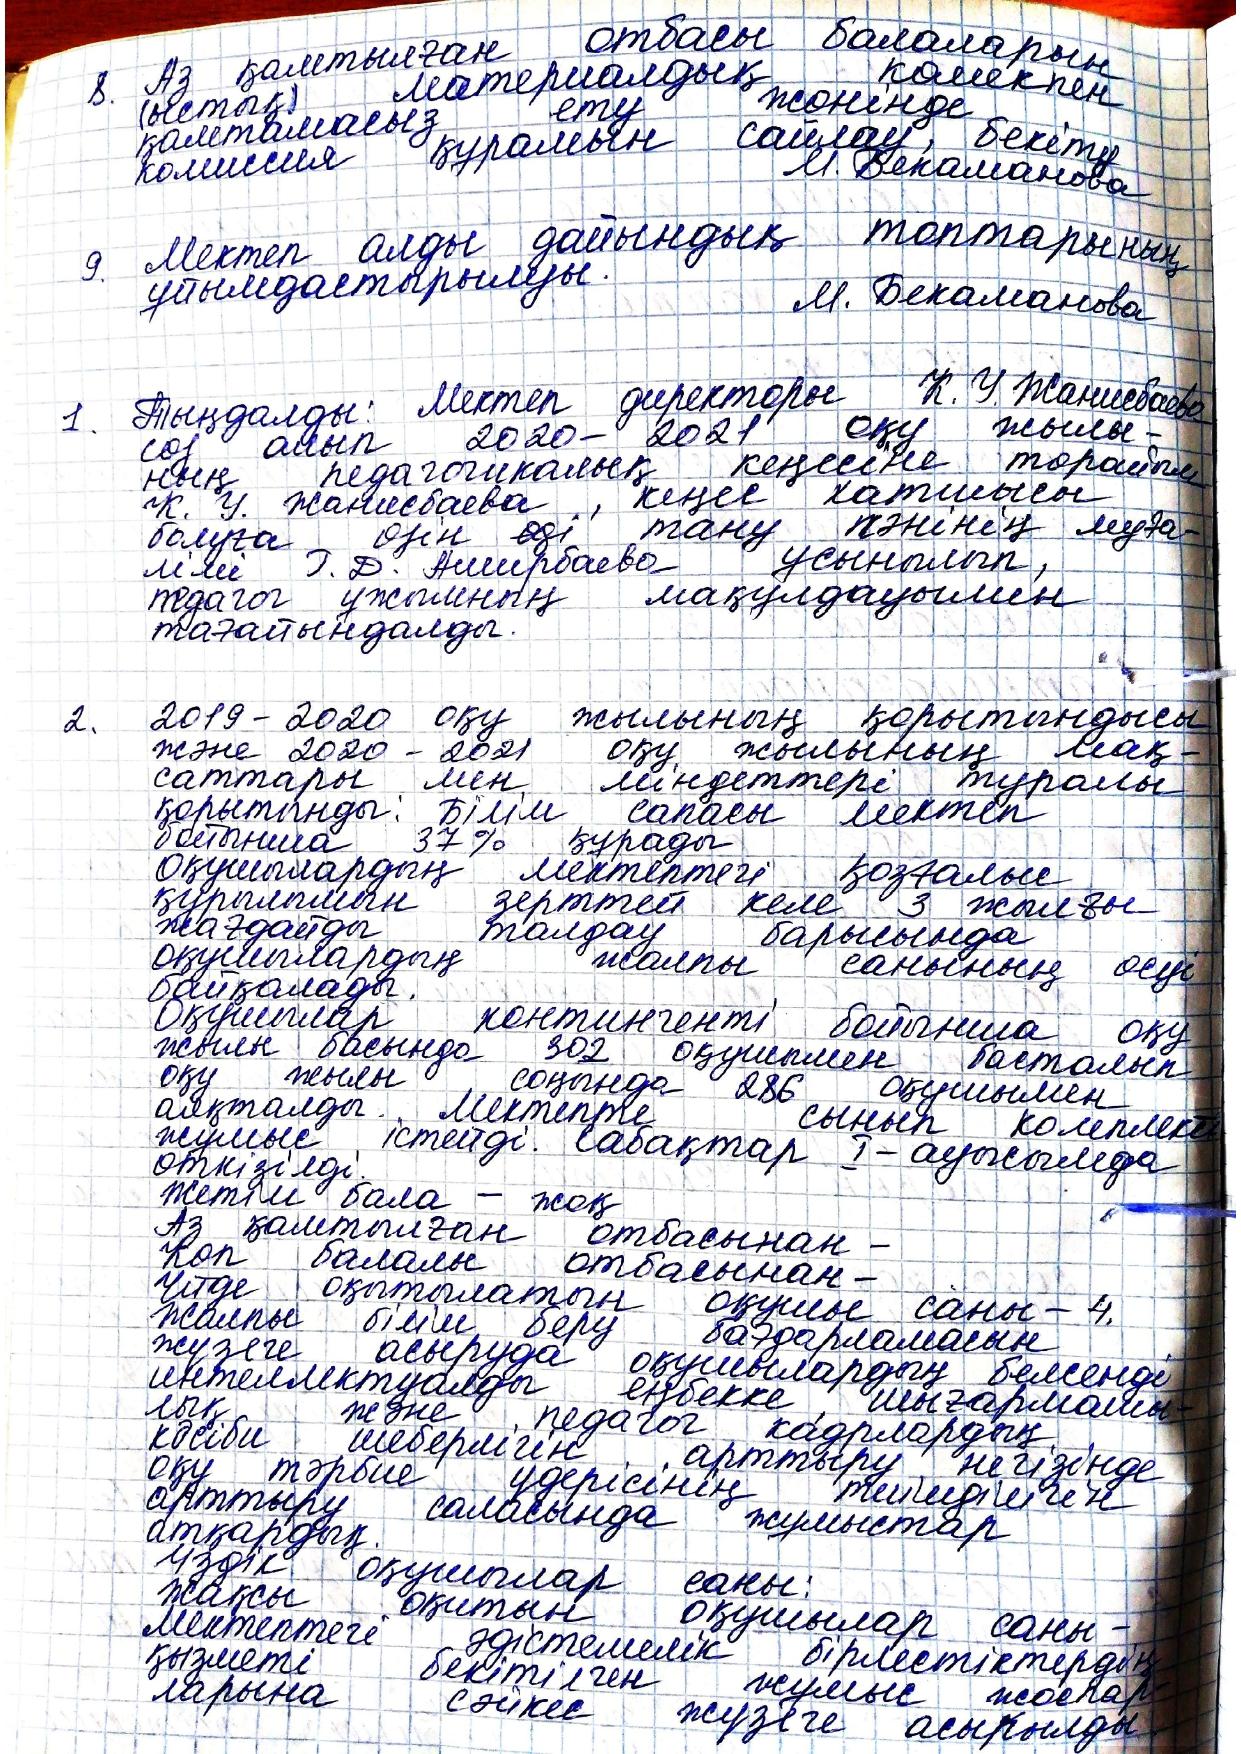 8. Аз қамтылған отбасы балаларын
(ыстық) материалдық көмекпен
қамтамасыз ету жөнінде
комиссия құрамын сайлау, бекіту
М. Бекаманова
9. Мектеп алды дайындық топтарының
ұйымдастырылуы.
М. Бекаманова
1. Тыңдалды: Мектеп директоры К. У. Жанисбаева
сөз алып 2020– 2021 оқу жылы-
ның педагогикалық кеңесіне төрайым
К. У. Жанисбаева, кеңес хатшысы
болуға өзін өзі тану пәнінің мұға-
лімі Г. Д. Амирбаева ұсынылып,
педагог ұжымның мақұлдауымен
тағайындалды.
2. 2019 - 2020 оқу жылының қорытындысы
және 2020 - 2021 оқу жылының мақ-
саттары мен міндеттері туралы
қорытынды: Білім сапасы мектеп
бойынша 37% құрады
Оқушылардың мектептегі қозғалыс
құрылымын зерттей келе 3 жылғы
жағдайды талдау барысында
оқушылардың жалпы санының өсуі
байқалады.
Оқушылар контингенті бойынша оқу
жылы басында 302 оқушымен басталып
оқу жылы соңында 286 оқушымен
аяқталды. Мектепте сынып комплекті
жұмыс істейді. Сабақтар I - ауысымда
өткізілді.
Жетім бала – жоқ
Аз қамтылған отбасынан –
Көп балалы отбасынан –
Үйде оқытылатын оқушы саны – 4.
Жалпы білім беру бағдарламасын
жүзеге асыруда оқушылардың белсенді
интеллектуалды еңбекке, шығармашы-
лық және педагог кадрлардың
кәсіби шеберлігін арттыру негізінде
оқу тәрбие үдерісінің тиімділігін
арттыру саласында жұмыстар
атқардық.
Үздік оқушылар саны:
Жақсы оқитын оқушылар саны –
Мектептегі әдістемелік бірлестіктердің
қызметі бекітілген жұмыс жоспар
ларына сәйкес жүзеге асырылды